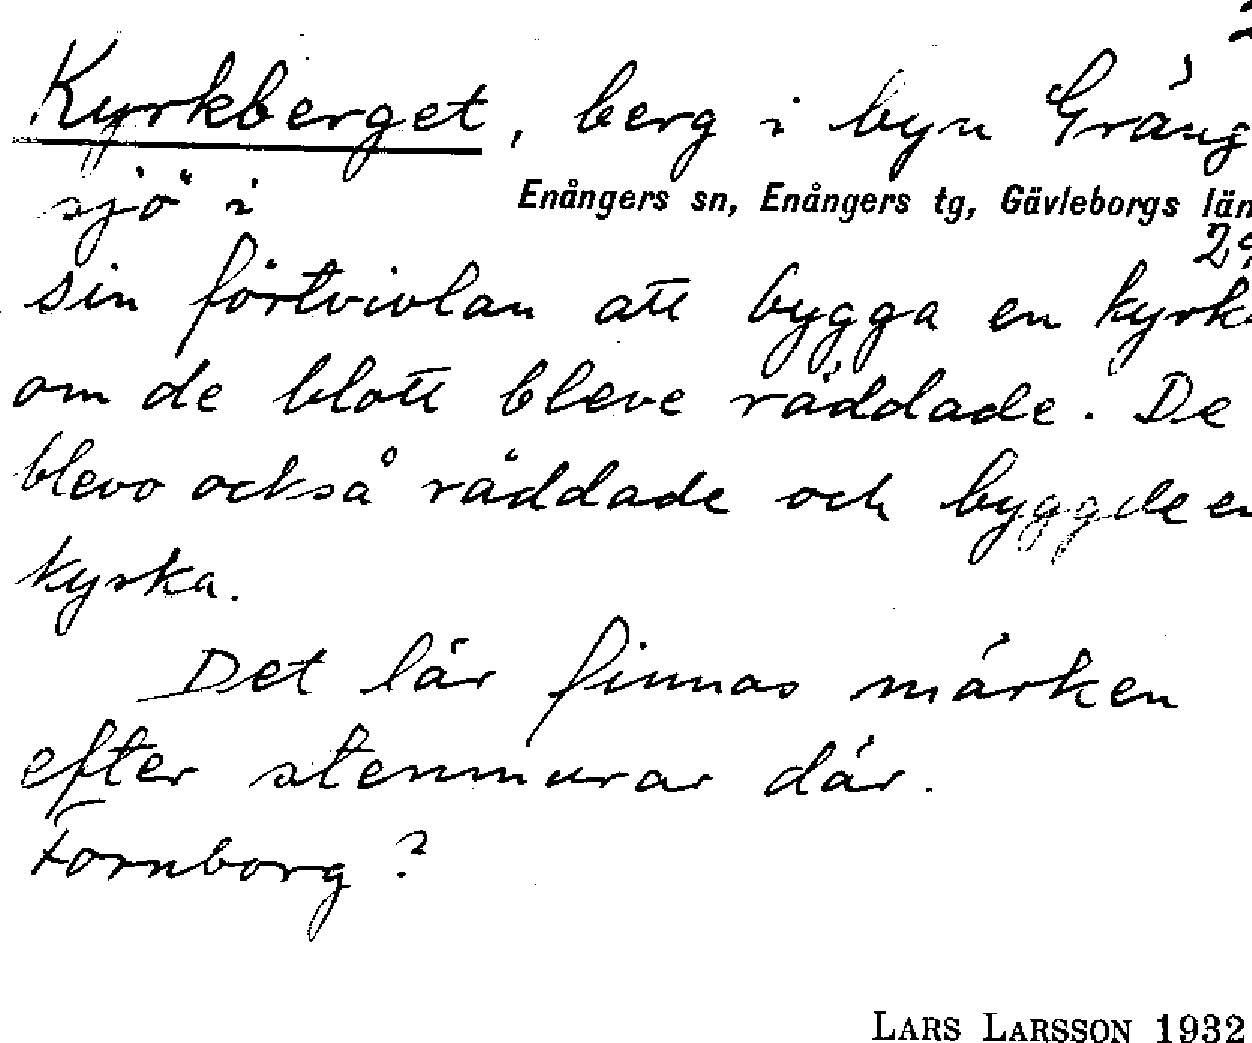 Kyrkberget, berg i byn Gräng
sjö i Enångers sn, Enångers tg, Gävleborgs län
sin förtvivlan att bygga en kyrk
om de blott bleve räddade. De
blevo också räddade och byggde en
kyrka.
Det lär finnas märken
efter stenmurar där.
Fornborg?
LARS LARSSON 1932